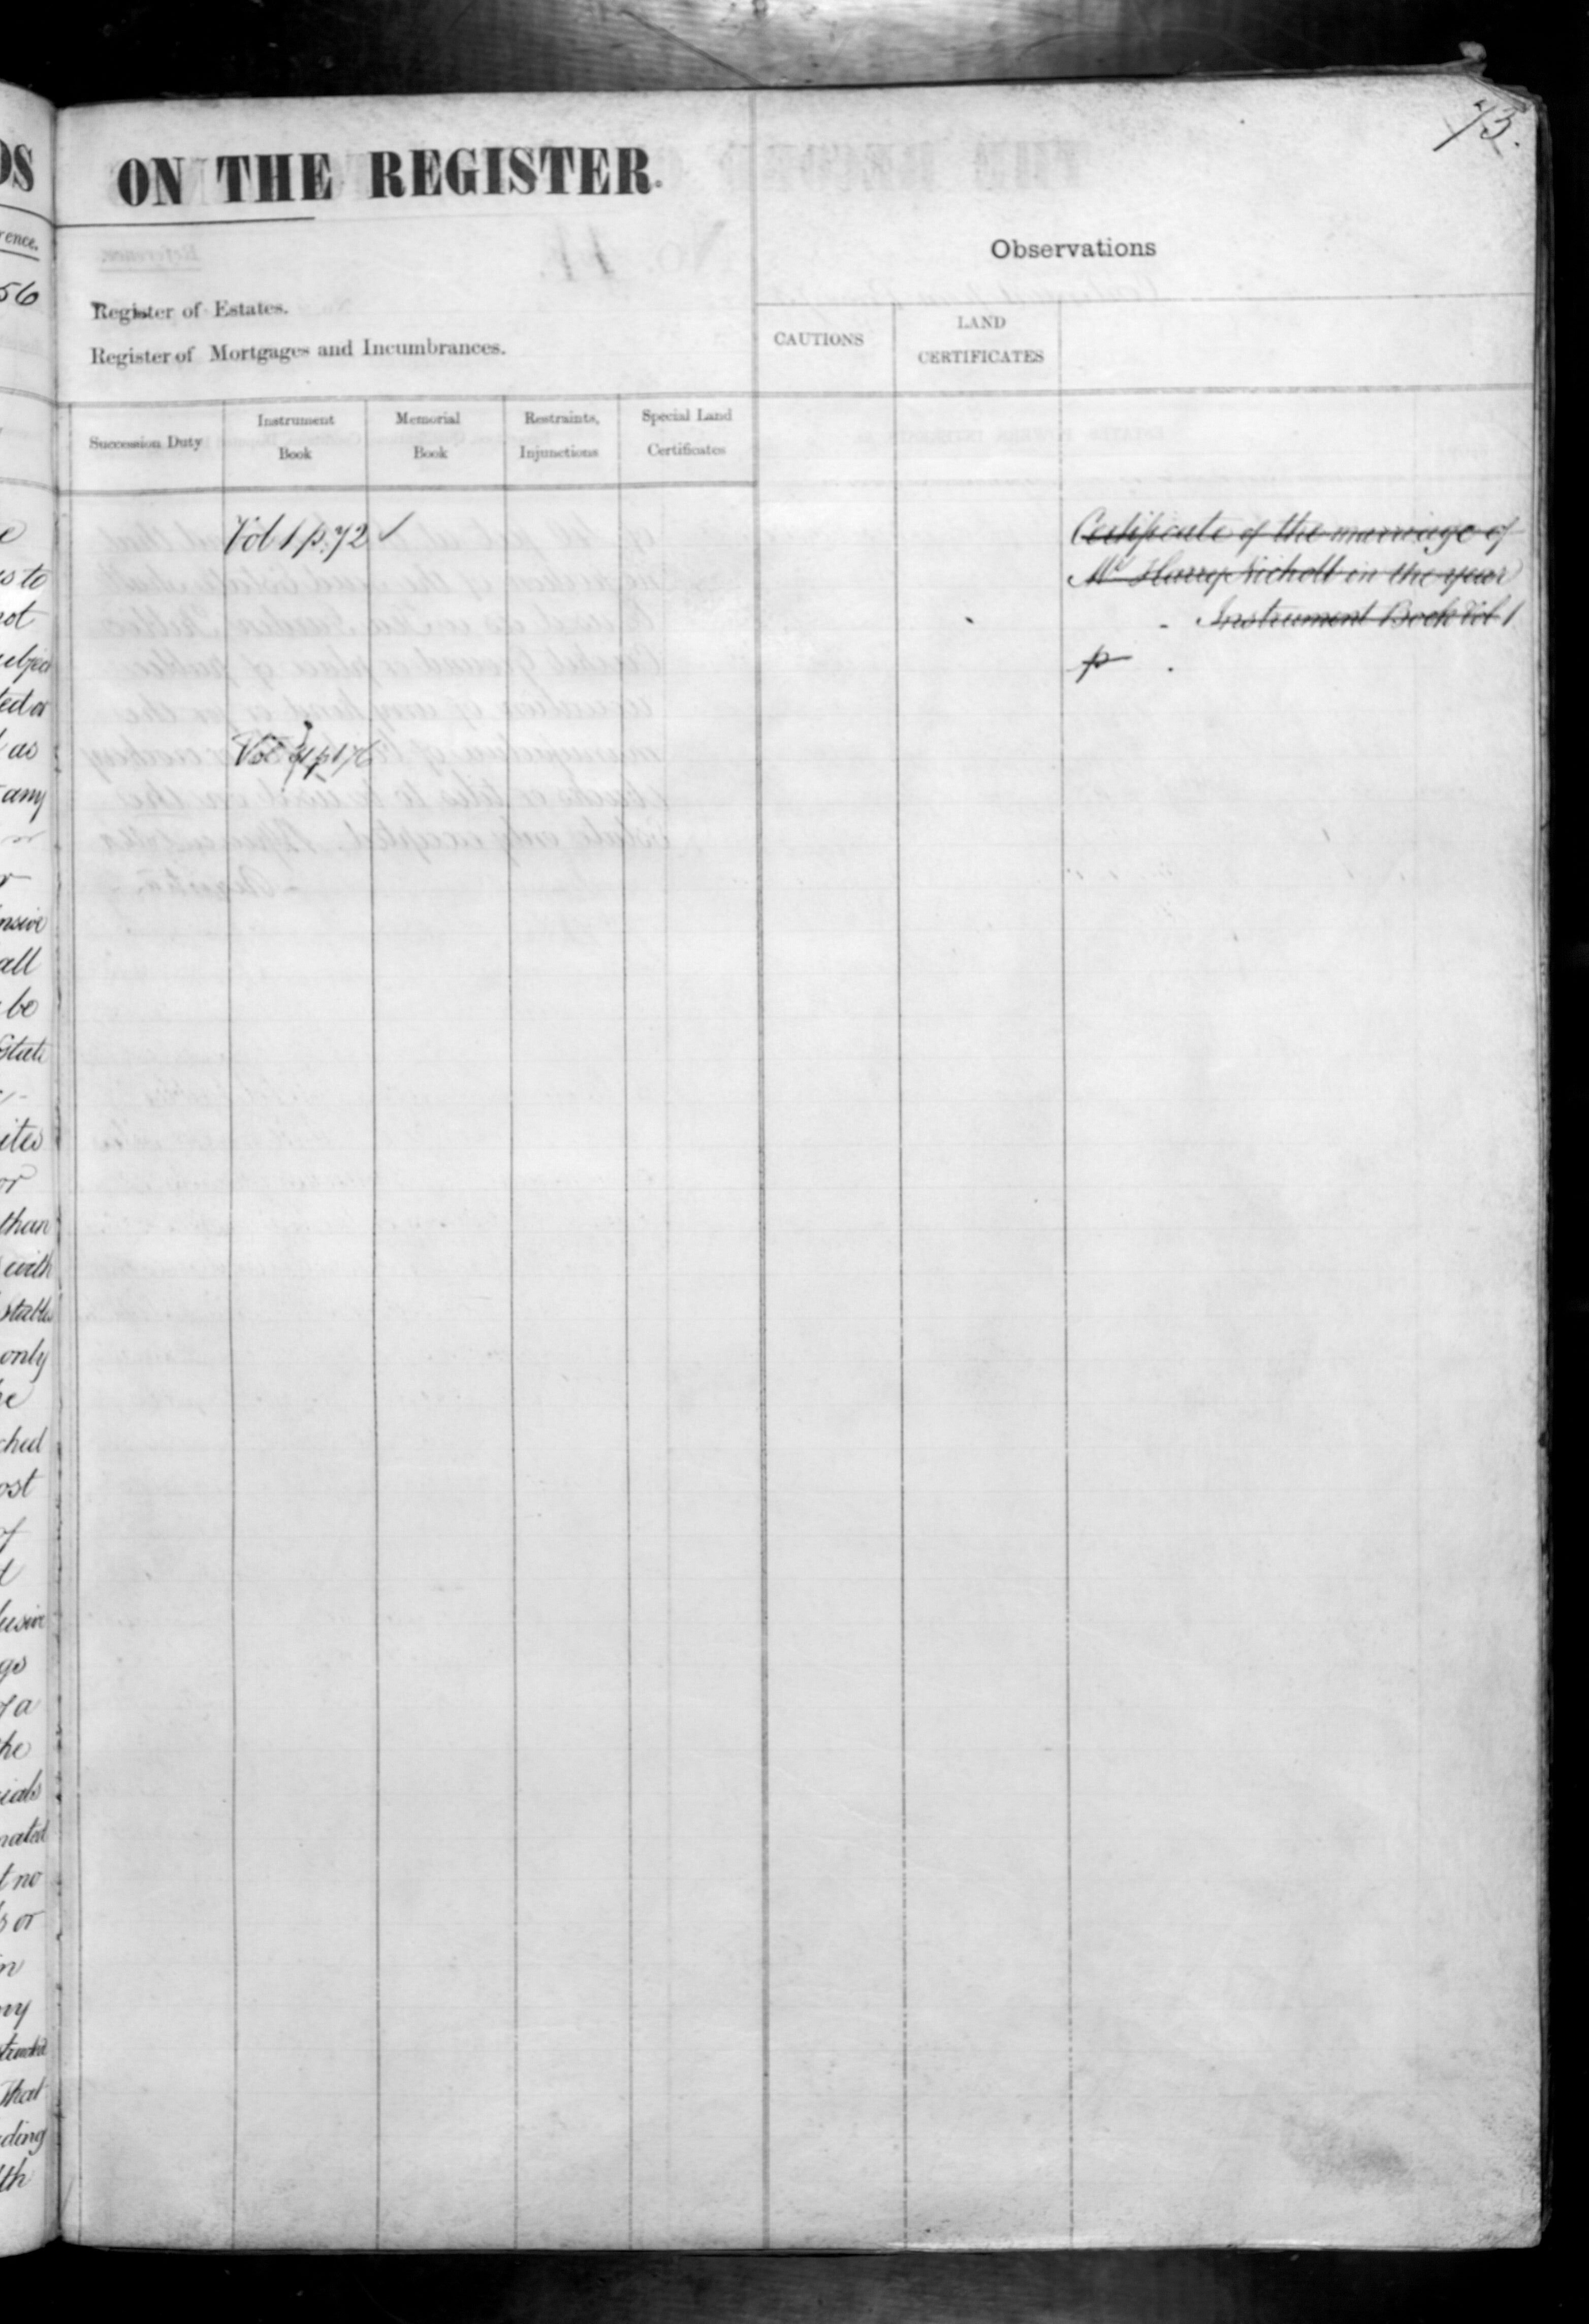 73.
ON THE REGISTER.
Register of Estates.
Register of Mortgages and Incumbrances.
Observations
CAUTIONS
LAND
CERTIFICATES
Succession Duty
Instrument
Book
Memorial
Book
Restraints,
Injunctions
Special Land
Certificates
Vol 1 p. 72 ✓
Certificate of the marriage of
Mr Harry Nicholl in the year
Instrument Book Vol 1
p
Vol
DS
rence.
56
s to
not
as
any
nsive
all
be
State
ites
or
than
with
stables
only
he
ched
ost
of
lusive
gs
of a
he
ials
nated
t no
s or
n
ny
That
ding
th